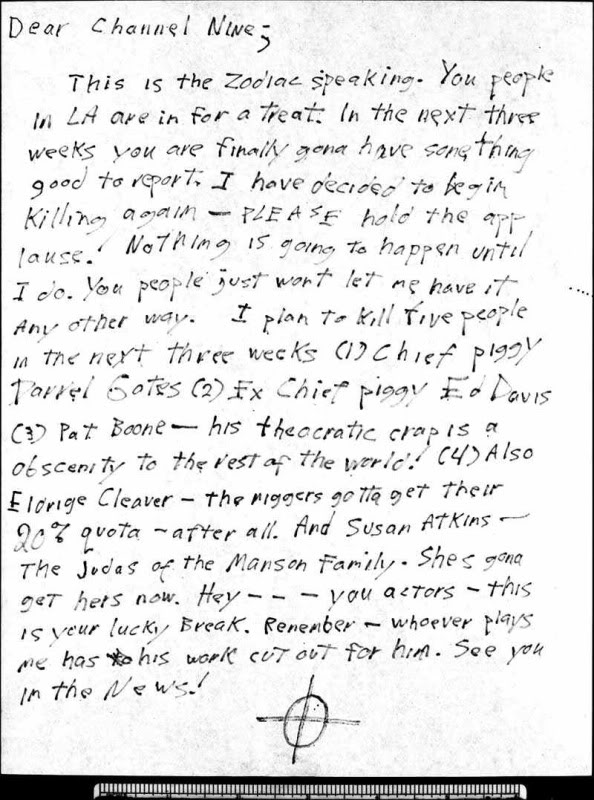 Dear Channel Nine;
This is the Zodiac speaking. You people
in LA are in for a treat. In the next three
weeks you are finally gona have something
good to report. I have decided to begin
killing again — PLEASE hold the app
lause! Nothing is going to happen until
I do. You people just wont let me have it
any other way. I plan to kill five people
in the next three weeks (1) Chief piggy
Darrel Gates (2) Ex Chief piggy Ed Davis
(3) Pat Boone — his theocratic crap is a
obscenity to the rest of the world! (4) Also
Eldrige Cleaver — the niggers gotta get their
20% quota — after all. And Susan Atkins —
The Judas of the Manson Family. Shes gona
get hers now. Hey — — — you actors — this
is your lucky Break. Remember — whoever plays
me has his work cut out for him. See you
in the News!